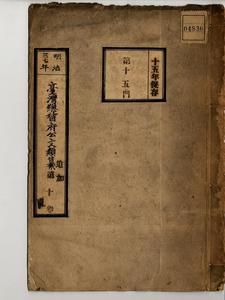 04836
十五年保存
第十五門
明治三七年
臺灣總督府公文類纂 追加 第十卷